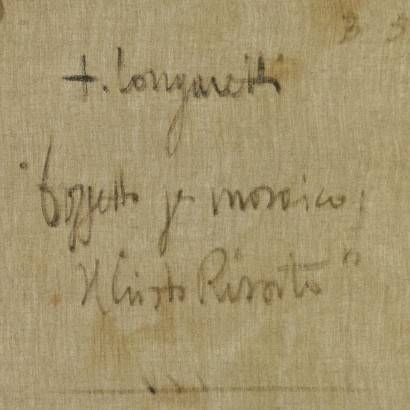 3 3
t. Longaretti
"Bozzetto per mosaico;
Il Cristo Risorto"